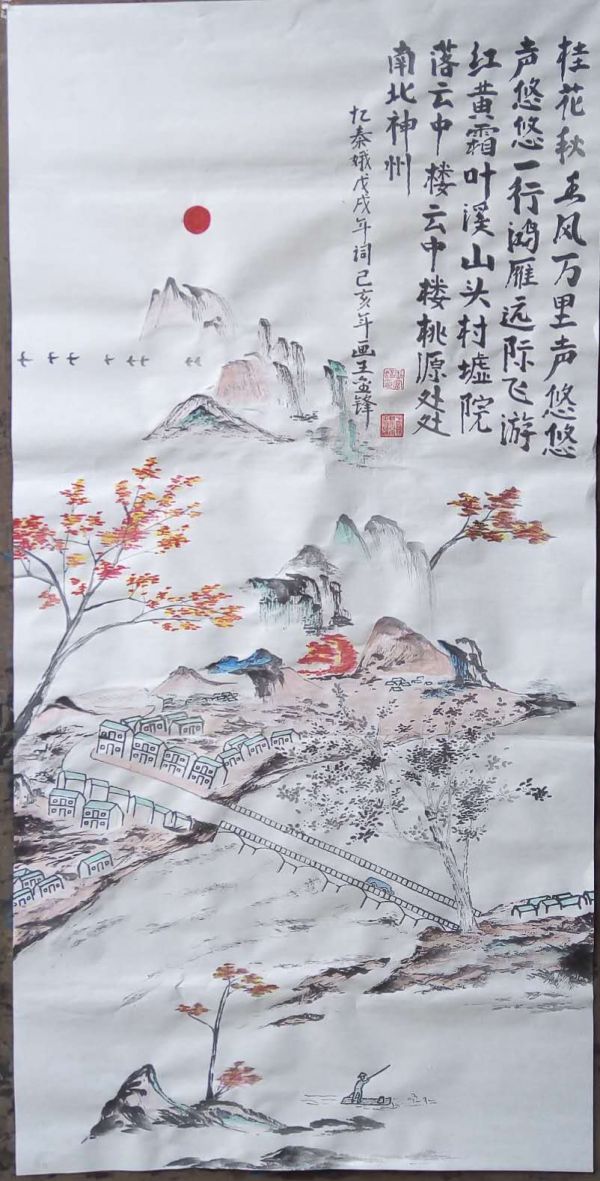 桂花秋玉风万里声悠悠
声悠悠一行鸿雁远际飞游
红黄霜叶溪山头村墟院
落云中楼云中楼桃源处处
南北神州
忆秦娥戊戌年词己亥年画王金锋